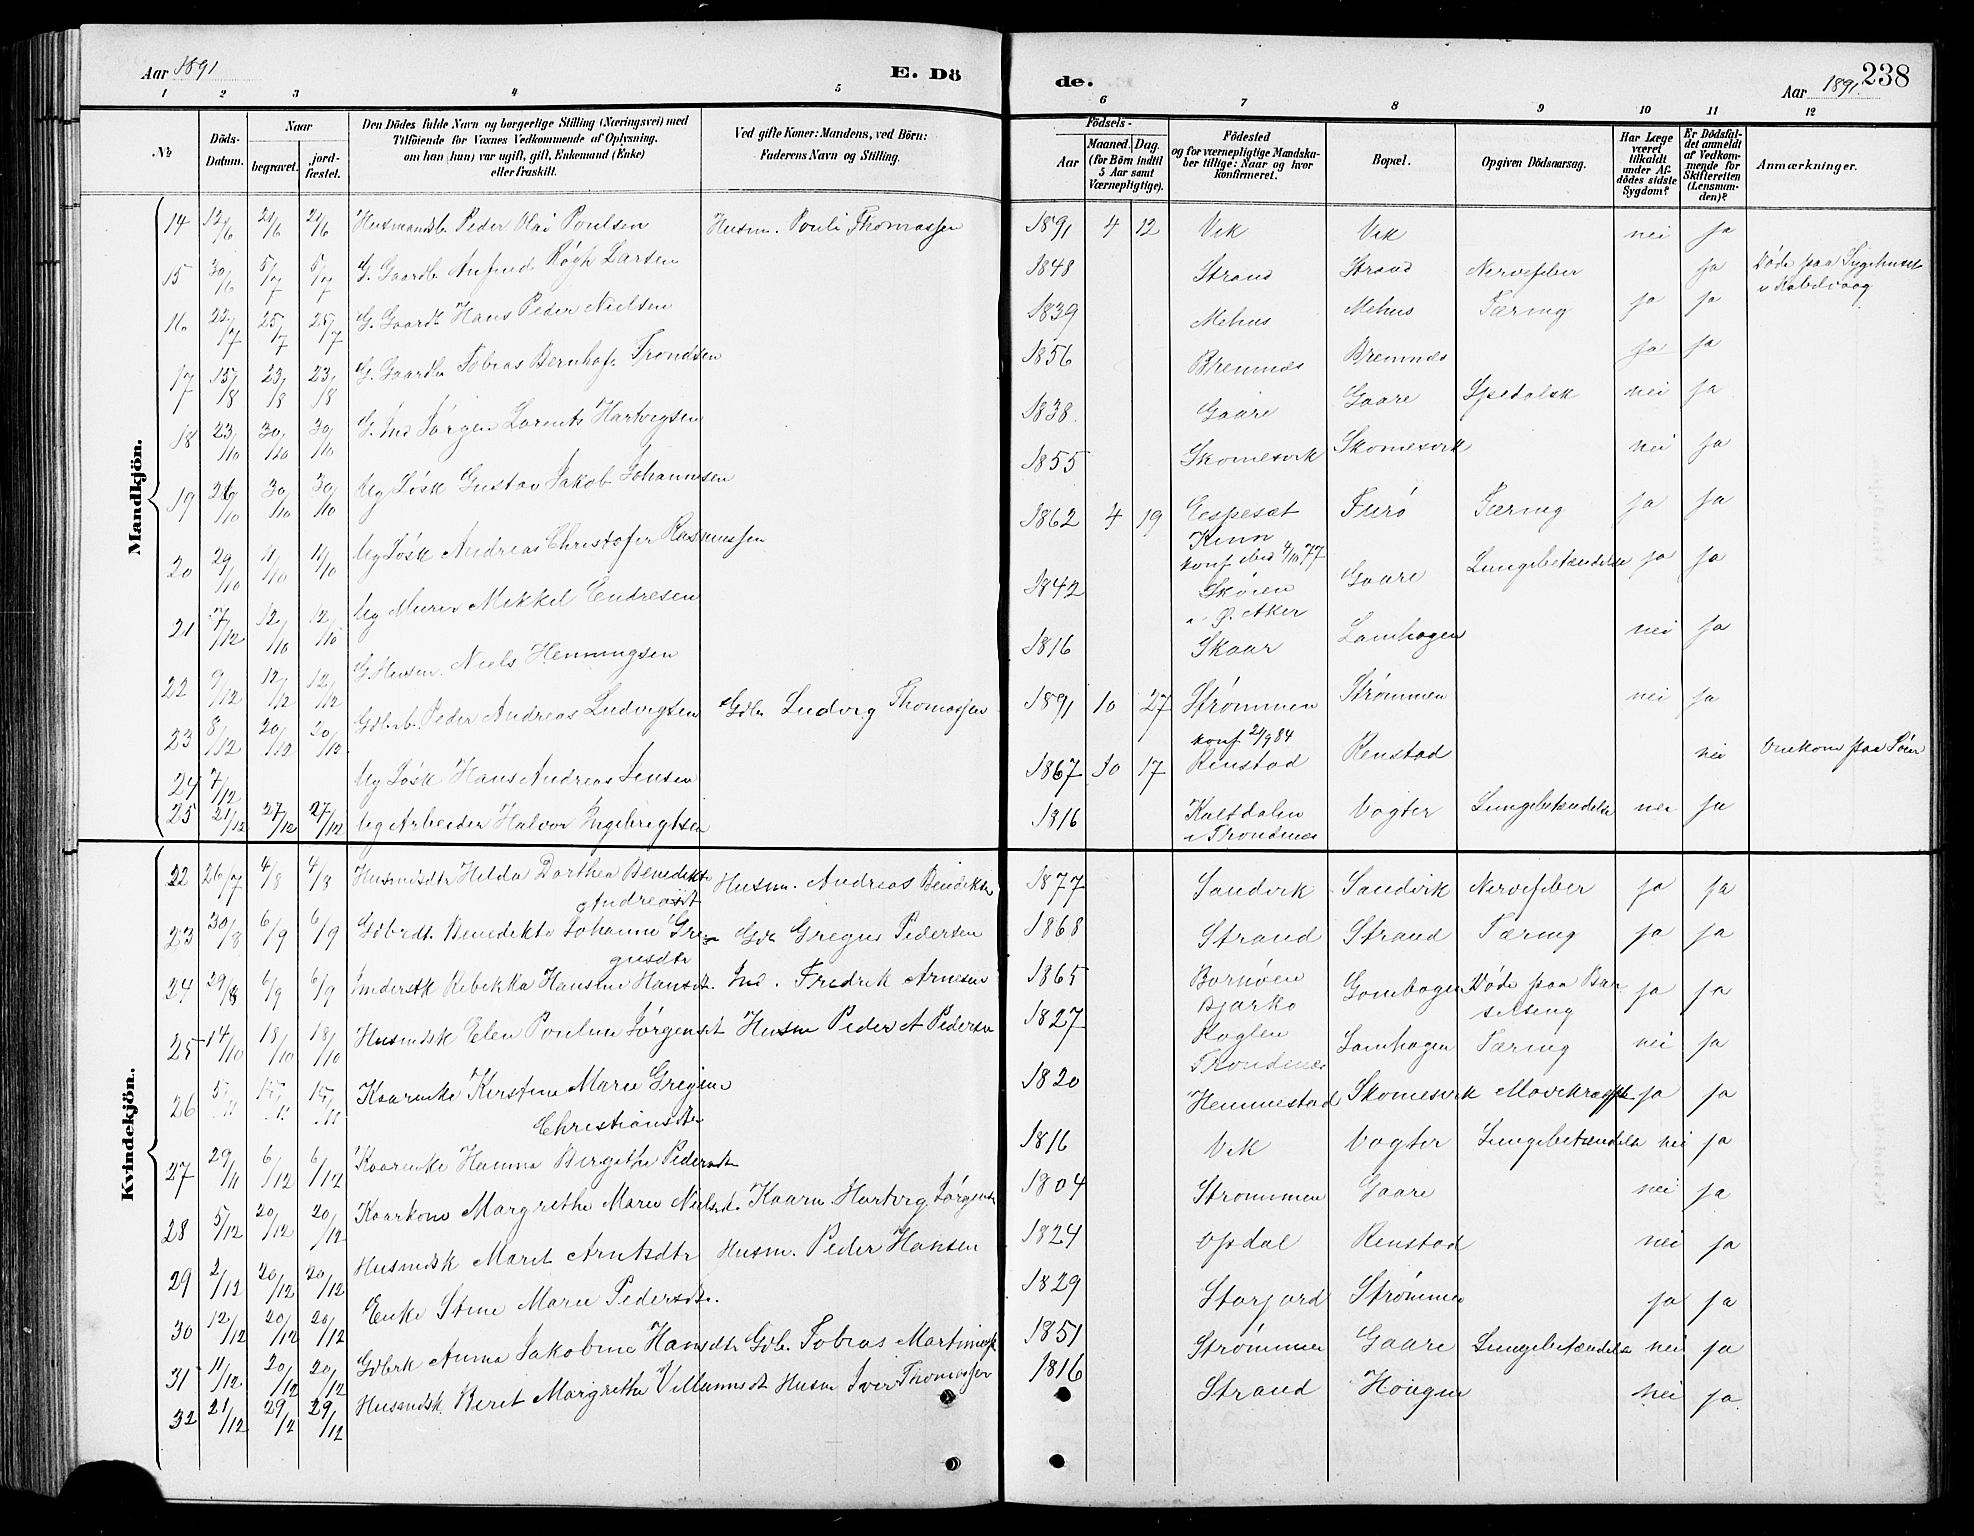 Aar 1891
E. Dö
de.
Aar 1891.
238
1 2 3 4 5 6 7 8 9 10 11 12
№
Döds-Datum.
Naar
begravet.
jord-fæstet.
Den Dödes fulde Navn og borgerlige Stilling (Næringsvei) med
Tilföiende for Voxnes Vedkommende af Oplysning,
om han (hun) var ugift, gift, Enkemand (Enke)
eller fraskilt.
Ved gifte Koner: Mandens, ved Börn:
Faderens Navn og Stilling.
Födsels-
Aar
Maaned. Dag.
(for Börn indtil
5 Aar samt
Værnepligtige).
Födested
og for værnepligtige Mandska-
ber tillige: Naar og hvor
konfirmeret.
Bopæl.
Opgiven Dödsaarsag.
Har Læge
været
tilkaldt
under Af-
dödes sidste
Sygdom?
Er Dödsfal-
det anmeldt
af Vedkom-
mende for
Skifteretten
(Lensman-
den)?
Anmærkninger.
Mandkjön.
14 12/6 21/6 21/6 Husmandsb. Peder Olai Poulsen Husm. Pouli Thomassen 1891 4 12 Vik Vik nei ja
15 30/6 5/7 5/7 G. Gaardb. Anfind Røgh Larsen 1848 Strand Strand Nervefeber ja Døde paa Sygehuset
i Kabelvaag
16 22/7 25/7 25/7 G. Gaardb Hans Peder Nielsen 1839 Mehus Mehus Tæring ja ja
17 15/8 23/8 23/8 G. Gaardbr Tobias Bernhof Trondsen 1856 Bremnes Bremnes ja ja
18 23/10 30/10 30/10 G. Ind Jørgen Lorents Hartvigsen 1838 Gaare Gaare Spedalsk nei ja
19 26/10 30/10 30/10 Ug Løsk Gustav Jakob Johannsen 1855 Skomesvik Skomesvik nei ja
20 29/10 11/10 11/10 Ug Løsk Andreas Christofer Rasmussen 1862 4 19 Eespesæt Furø Tæring ja ja
Kinn
konf ibid 4/10 77
21 7/12 12/10 12/10 Ug Murer Mikkel Endresen 1842 Skøien Gaare Lungebetændelse ja ja
i Ø. Aker
22 9/12 12/12 12/12 G. Husm. Niels Henningsen 1816 Skaar Lamhagen nei ja
23 8/12 20/12 20/12 Gdbrb. Peder Andreas Ludvigsen Gdbr Ludvig Thomassen 1891 10 27 Strømmen Strømmen nei ja
24 7/12 Ug Løsk Hans Andreas Jensen 1867 10 17 konf 21/9 84
Renstad Renstad nei Omkom paa Søen
25 21/12 27/12 27/12 Ug Arbeider Halvor Ingebrigtsen 1816 Kaltdalen Vogter Lungebetændelse nei ja
i Trondenes
Kvindekjön.
22 26/7 4/8 4/8 Husmdsdtr Hilda Dorthea Benedikte Husm. Andreas Benediktsen 1877 Sandvik Sandvik Nervefeber ja ja
Andreasdt
23 30/8 6/9 6/9 Gdbrdt. Benedikte Johanne Gre- Gdb Gregus Pedersen 1868 Strand Strand Tæring ja ja
gusdtr
24 29/8 6/9 6/9 Inderstk Rebekka Hansine Hansdt. Ind. Fredrik Arnesen 1865 Bornøen Gombogen Døde paa Bar ja ja
Bjarkø selseng
25 14/10 18/10 18/10 Husmdsk Elen Pouline Jørgensdt Husm Peder A Pedersen 1827 Roglen Lamhagen Tæring nei ja
Trondenæs
26 5/11 15/11 15/11 Kaarenke Kirstine Marie Gregine 1820 Hemmestad Skomesvik Mavekræft ja ja
Christiansdtr
27 29/11 6/12 6/12 Kaarenke Hanna Birgithe Pedersdt 1816 Vik Vogter Lungebetændelse nei ja
28 5/12 20/12 20/12 Kaarkone Margrethe Marie Nielsdt. Kaarm. Hartvig Jørgens 1804 Strømmen Gaare nei ja
29 2/12 20/12 20/12 Husmdsk Marit Arntsdtr Husm. Peder Hansen 1824 Opdal Renstad nei ja
30 12/12 20/12 20/12 Enke Stine Marie Pedersdt. 1829 Storjord Strømmen ja ja
31 11/12 20/12 20/12 Gdbrk Anna Jakobine Hansdtr Gdb. Tobias Martinussen 1851 Strømmen Gaare Lungebetændelse nei ja
32 21/12 29/12 29/12 Husmdsk. Berit Margrethe Villumsdt Husm Iver Thomassen 1816 Strand Hougen nei ja